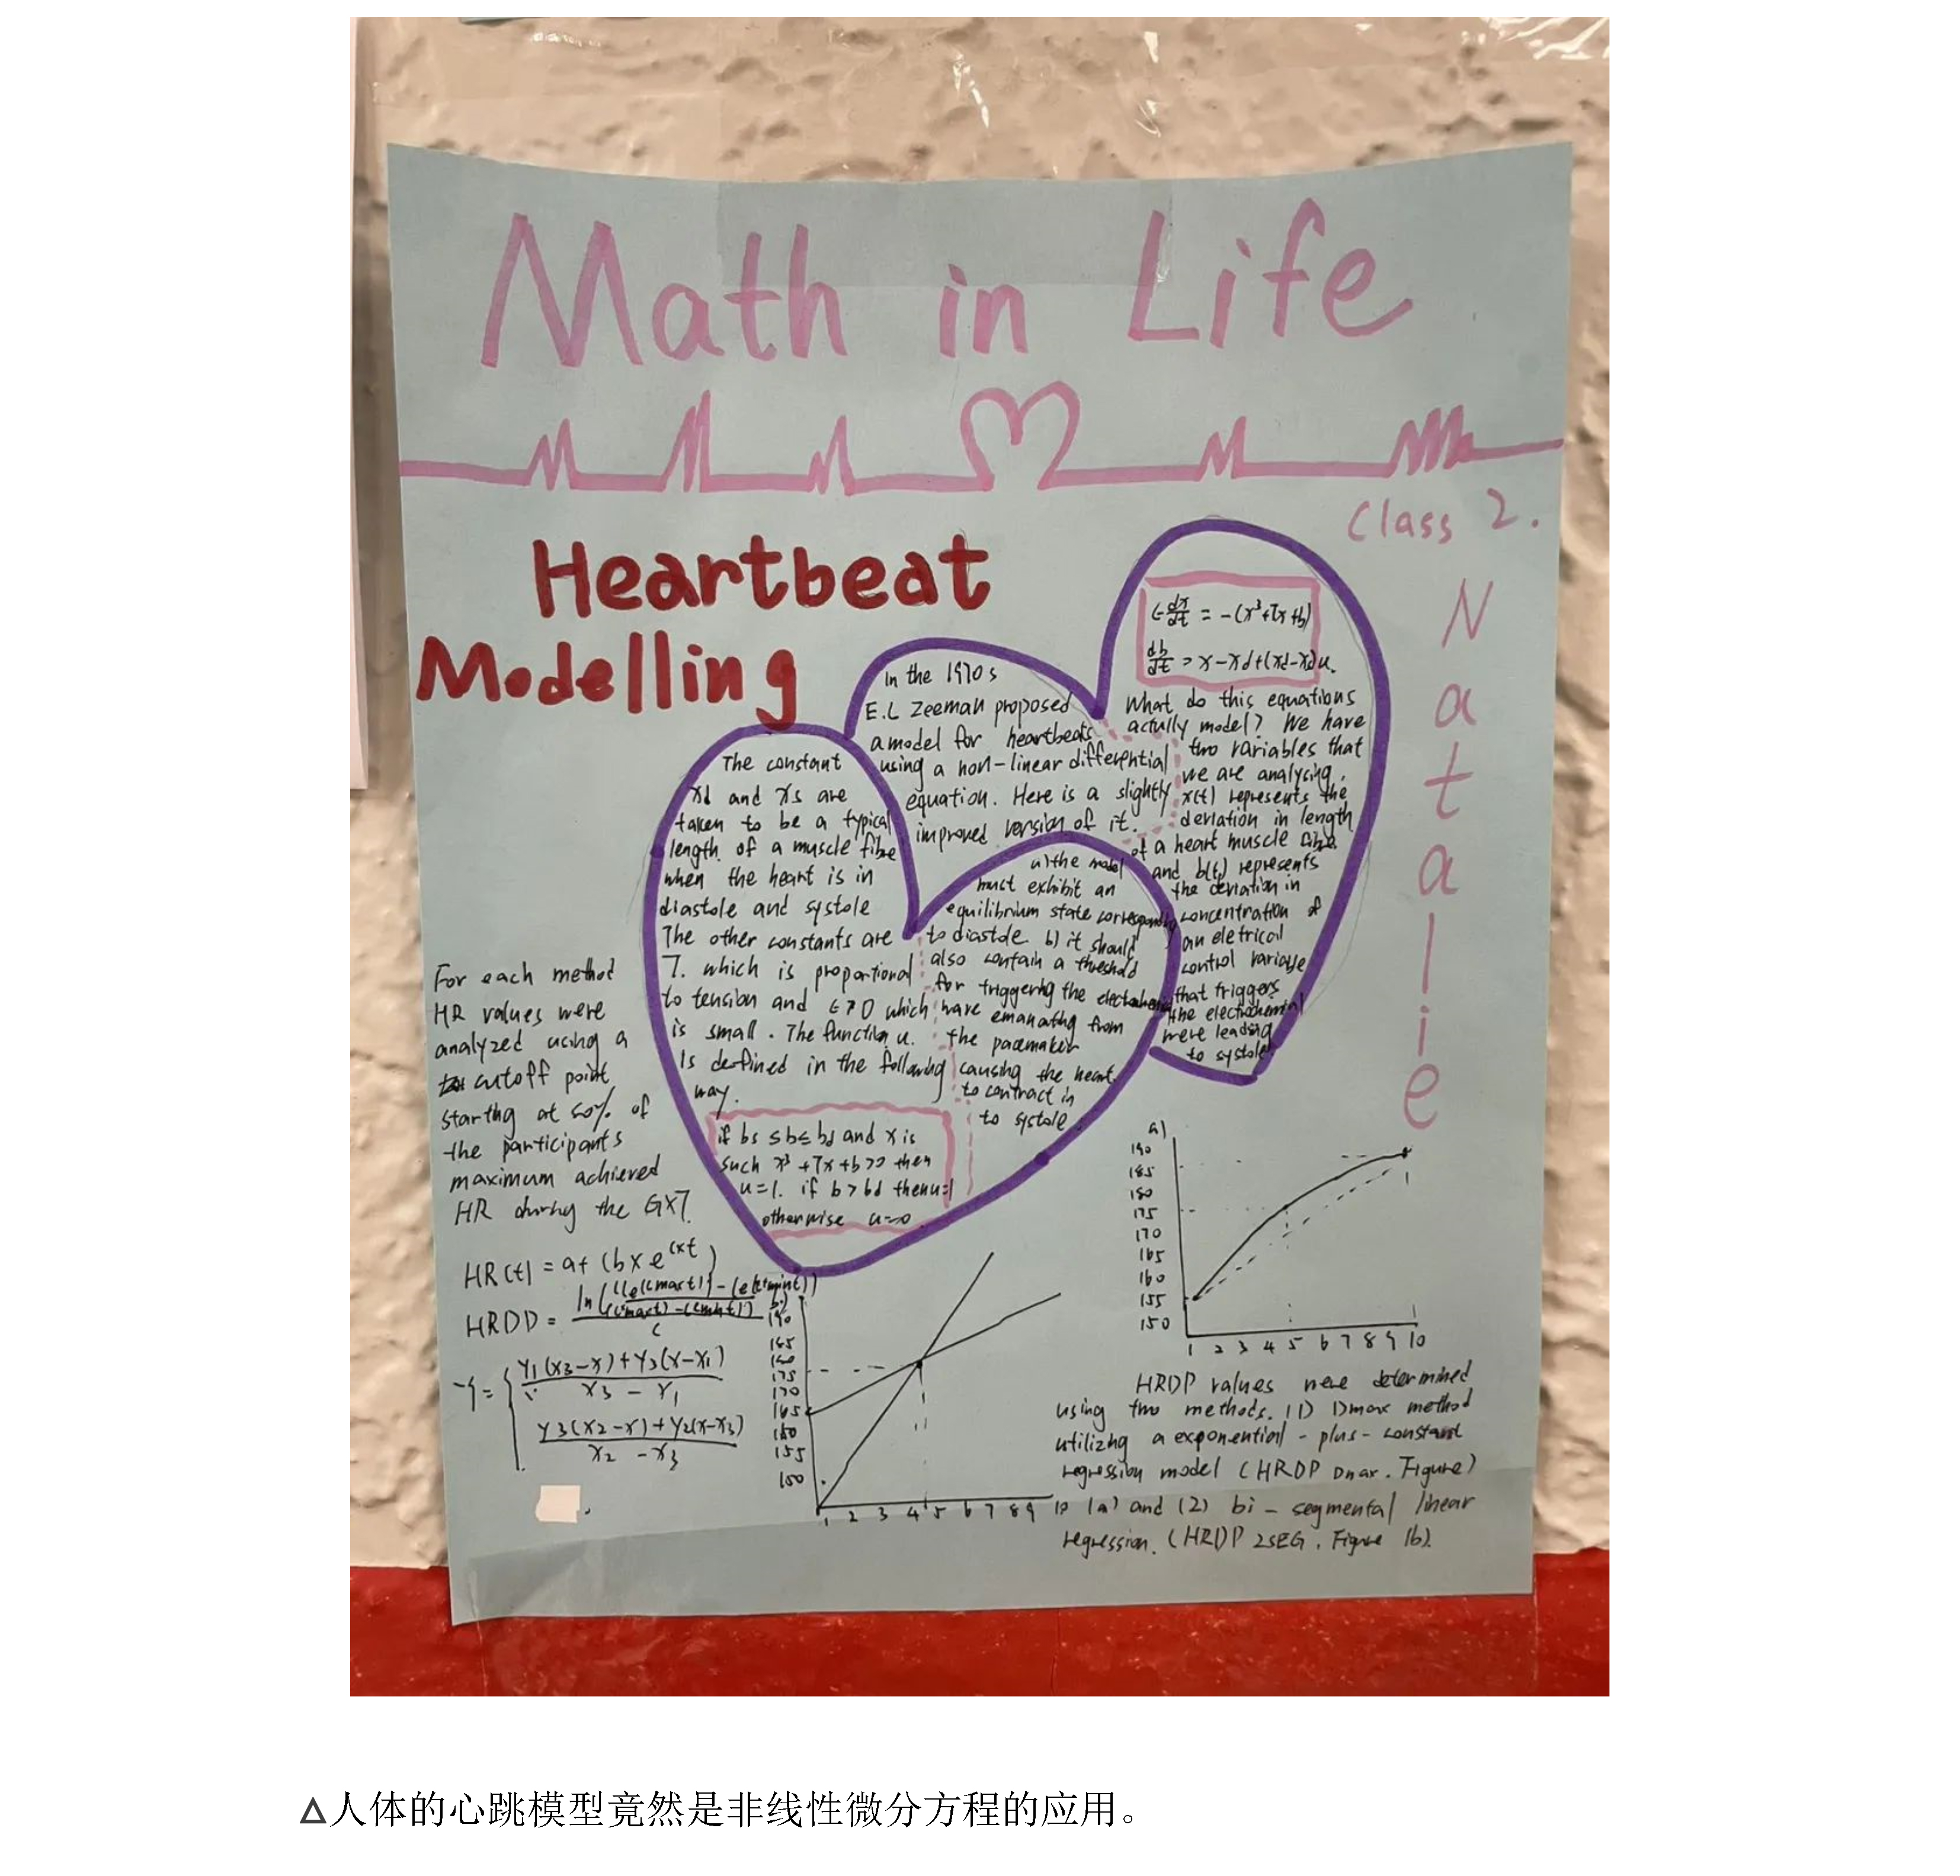 Math in Life
Class 2.
Natalie
Heartbeat
Modelling
In the 1970s
E.C Zeeman proposed
a model for heartbeats
using a non-linear differential
equation. Here is a slightly
improved version of it.
dx/dt = -(x³+Tx+b)
db/dt = x-xd+(xd-xs)u.
What do this equations
actully model? We have
two variables that
we are analysing.
x(t) represents the
deviation in length
of a heart muscle fibre
and b(t) represents
the deviation in
concentration of
an eletrical
control variable
that triggers
the electrochemical
were leading
to systole
The constant
xd and xs are
taken to be a typical
length of a muscle fibre
when the heart is in
diastole and systole
The other constants are
T. which is proportional
to tension and ϵ>0 which
is small. The function u.
Is defined in the following
way.
if bs ≤b≤ bd and x is
such x³+Tx+b>0 then
u=1. if b>bd then u=1
otherwise u=0
a) the model
must exhibit an
equilibrium state
to diastole b) it should
also contain a threshold
for triggering the
wave emanating from
the pacemaker
causing the heart
to contract in
to systole
For each method
HR values were
analyzed using a
cutoff point
starting at 50% of
the participants
maximum achieved
HR during the GXT.
HR(t) = a+ (b×e^(c×t)
HRDD =
Y = { Y1(X3-X)+Y3(X-X1) / X3 - X1
Y3(X2-X)+Y2(X-X3) / X2 - X3
a)
190
185
180
175
170
165
160
155
150
1 2 3 4 5 6 7 8 9 10
b)
190
185
180
175
170
165
160
155
150
1 2 3 4 5 6 7 8 9 10
HRDP values were determined
using two methods. (1) Dmax method
utilizing a exponential-plus-constant
regression model (HRDP Dmax. Figure)
(a) and (2) bi-segmental linear
regression. (HRDP 2SEG. Figure 1b).
△人体的心跳模型竟然是非线性微分方程的应用。